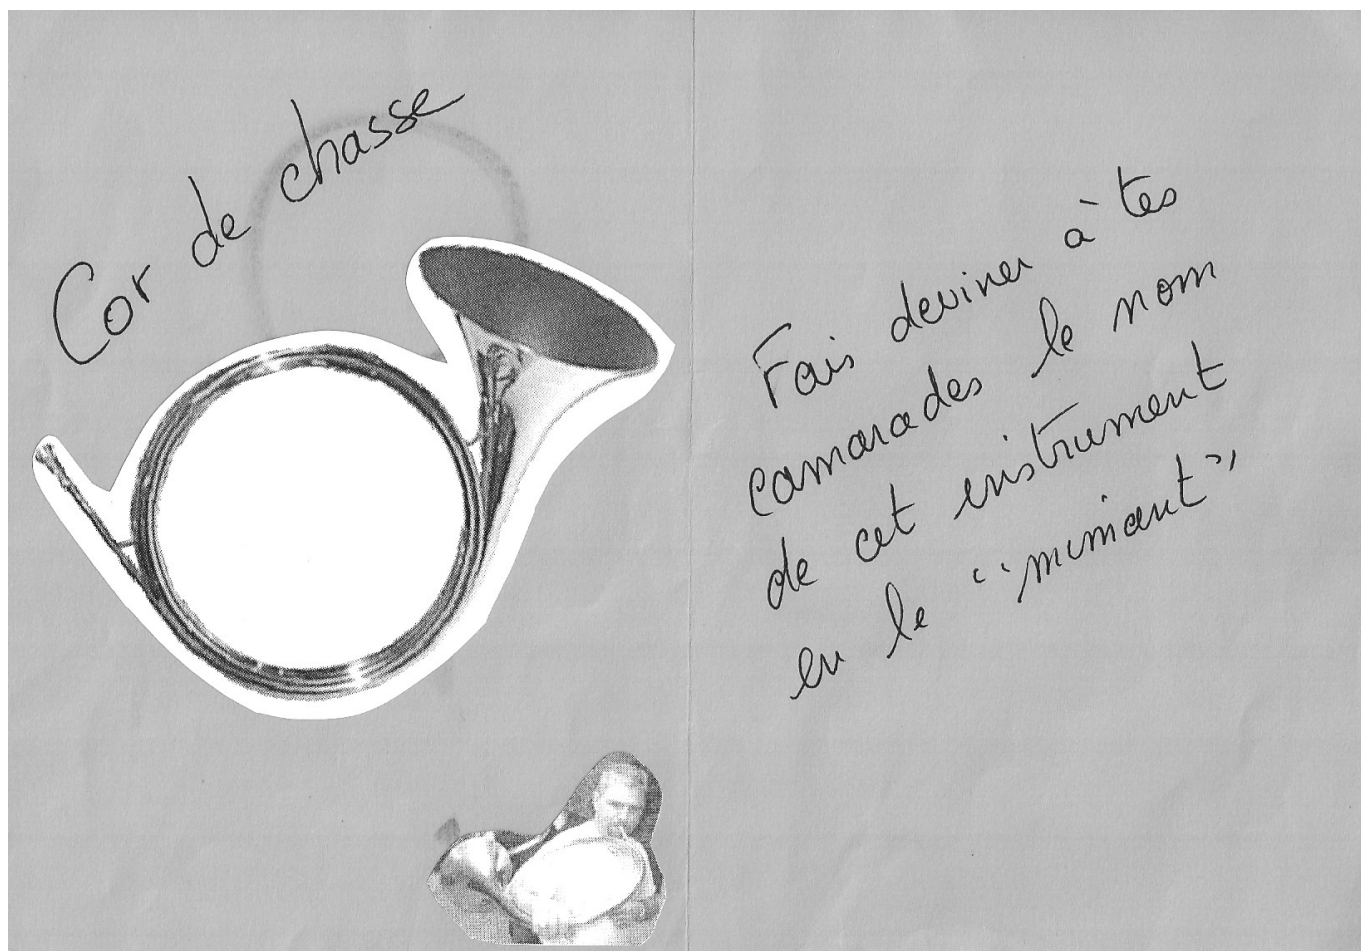 Cor de chasse
Fais deviner à tes
camarades le nom
de cet instrument
en le "mimant"